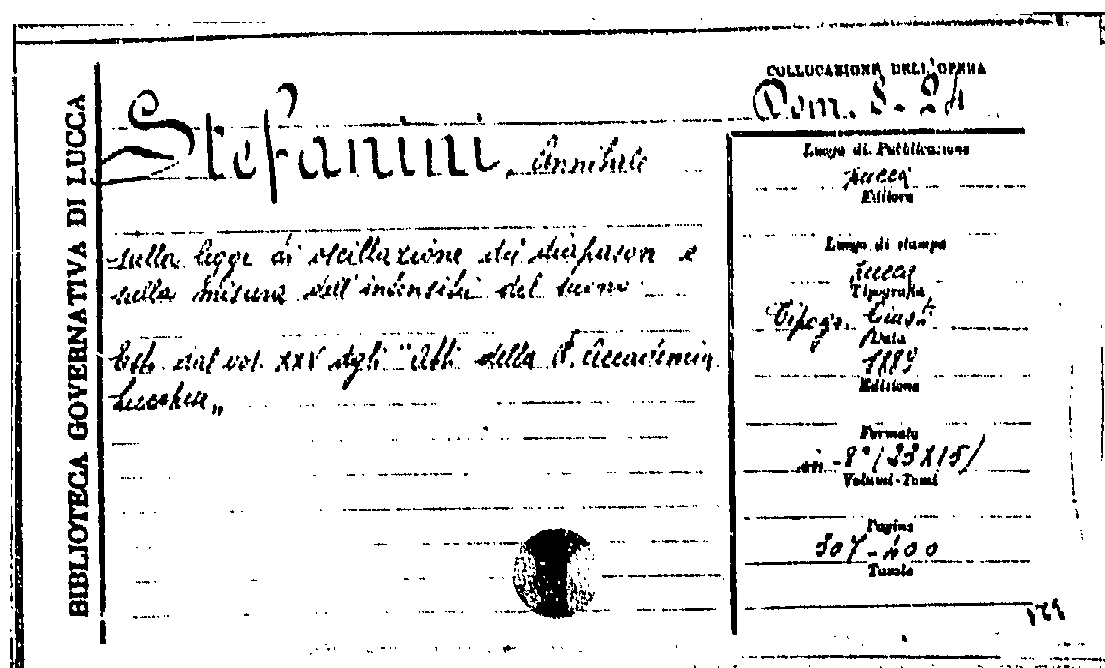 BIBLIOTECA GOVERNATIVA DI LUCCA
COLLOCAZIONE DELL'OPERA
Stefanini, Annibale
sulla legge di oscillazione dei diapason e
sulla misura dell'intensità del suono
Estr. dal vol. XXV degli "Atti della R. Accademia
Lucchese„
Luogo di Pubblicazione
Lucca
Editore
Luogo di stampa
Lucca
Tipografia
Tipogr. Giusti
Data
1889
Edizione
Formato
in-8° (23X15)
Volumi-Tomi
Pagine
307-400
Tavole